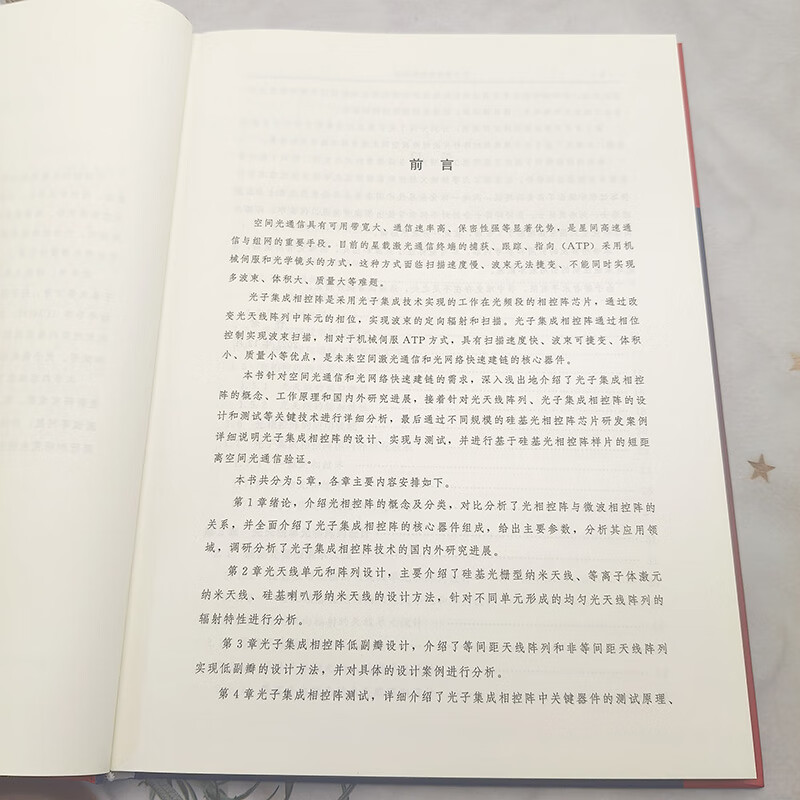 前 言
空间光通信具有可用带宽大、通信速率高、保密性强等显著优势，是星间高速通
信与组网的重要手段。目前的星载激光通信终端的捕获、跟踪、指向（ATP）采用机
械伺服和光学镜头的方式，这种方式面临扫描速度慢、波束无法捷变、不能同时实现
多波束、体积大、质量大等难题。
光子集成相控阵是采用光子集成技术实现的工作在光频段的相控阵芯片，通过改
变光天线阵列中阵元的相位，实现波束的定向辐射和扫描。光子集成相控阵通过相位
控制实现波束扫描，相对于机械伺服 ATP 方式，具有扫描速度快、波束可捷变、体积
小、质量小等优点，是未来空间激光通信和光网络快速建链的核心器件。
本书针对空间光通信和光网络快速建链的需求，深入浅出地介绍了光子集成相控
阵的概念、工作原理和国内外研究进展，接着针对光天线阵列、光子集成相控阵的设
计和测试等关键技术进行详细分析，最后通过不同规模的硅基光相控阵芯片研发案例
详细说明光子集成相控阵的设计、实现与测试，并进行基于硅基光相控阵样片的短距
离空间光通信验证。
本书共分为 5 章，各章主要内容安排如下。
第 1 章绪论，介绍光相控阵的概念及分类，对比分析了光相控阵与微波相控阵的
关系，并全面介绍了光子集成相控阵的核心器件组成，给出主要参数，分析其应用领
域，调研分析了光子集成相控阵技术的国内外研究进展。
第 2 章光天线单元和阵列设计，主要介绍了硅基光栅型纳米天线、等离子体激元
纳米天线、硅基喇叭形纳米天线的设计方法，针对不同单元形成的均匀光天线阵列的
辐射特性进行分析。
第 3 章光子集成相控阵低副瓣设计，介绍了等间距天线阵列和非等间距天线阵列
实现低副瓣的设计方法，并对具体的设计案例进行分析。
第 4 章光子集成相控阵测试，详细介绍了光子集成相控阵中关键器件的测试原理、